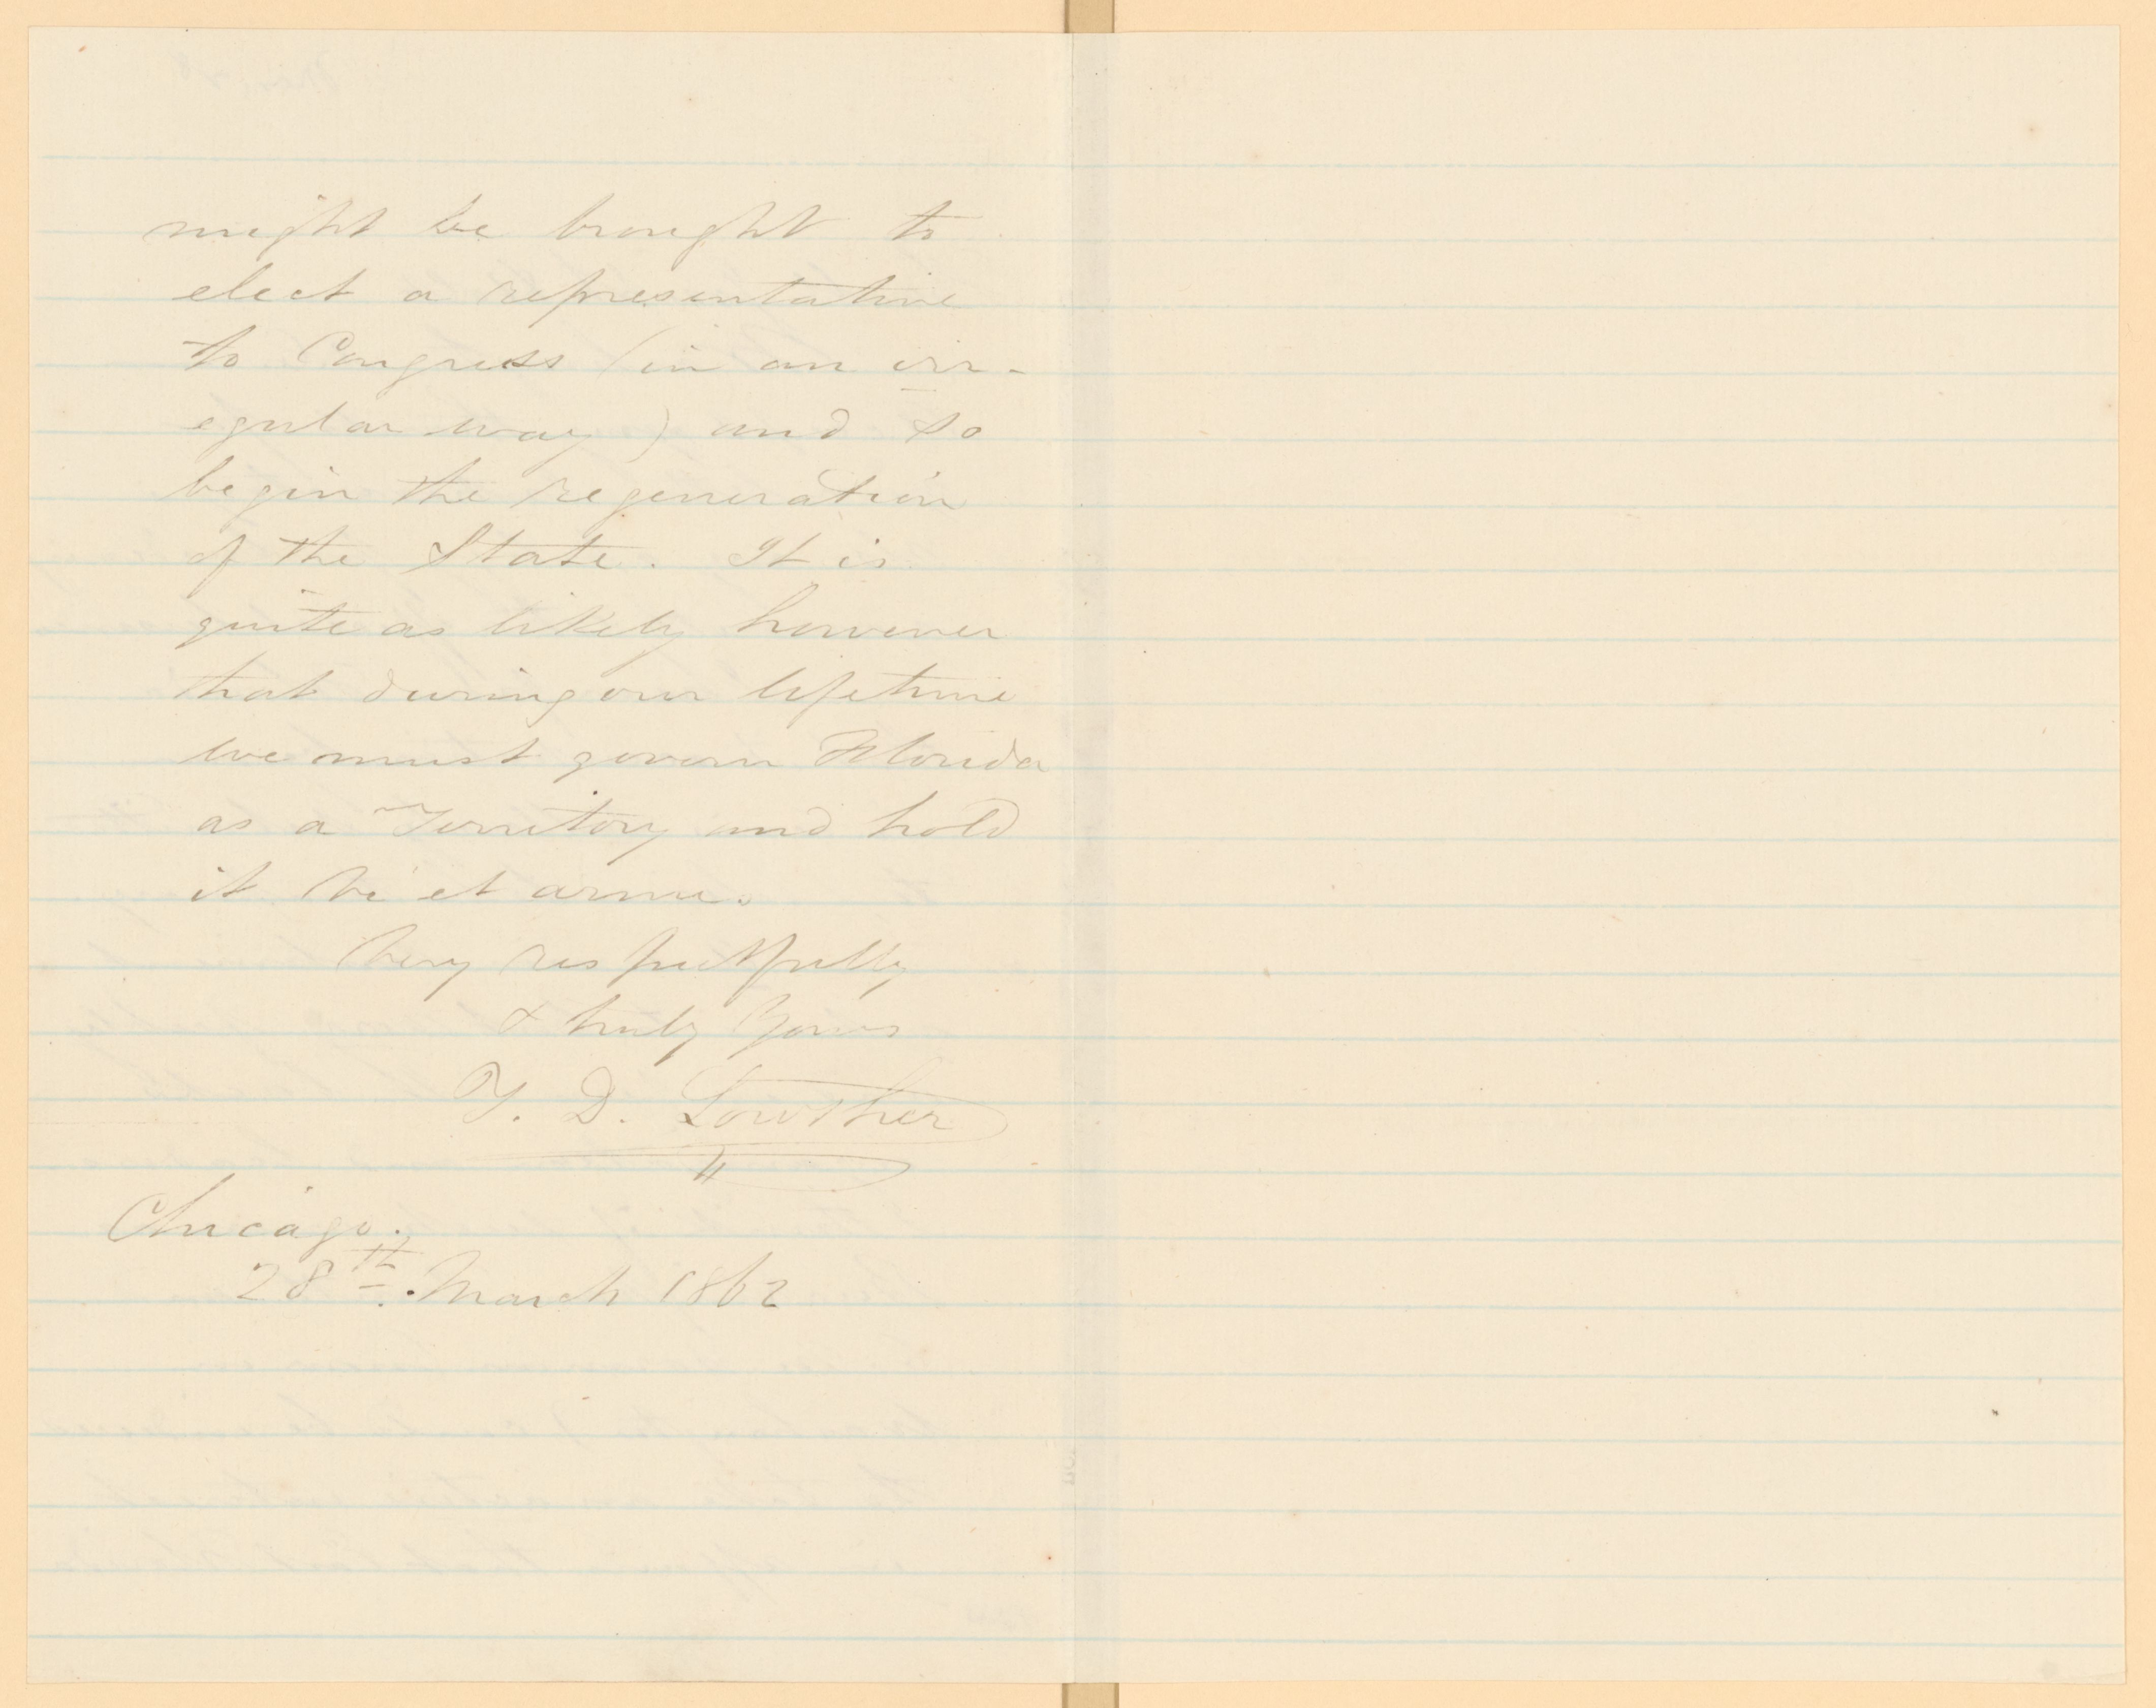 might be brought to
elect a representative
to Congress (in an irr-
egular way) and so
begin the regeneration
of the State. It is
quite as likely however
that during our lifetime
we must govern Florida
as a Territory and hold
it vi et armis.
Very respectfully
& truly Yours
T. D. Lowther
Chicago.
28th. March 1862